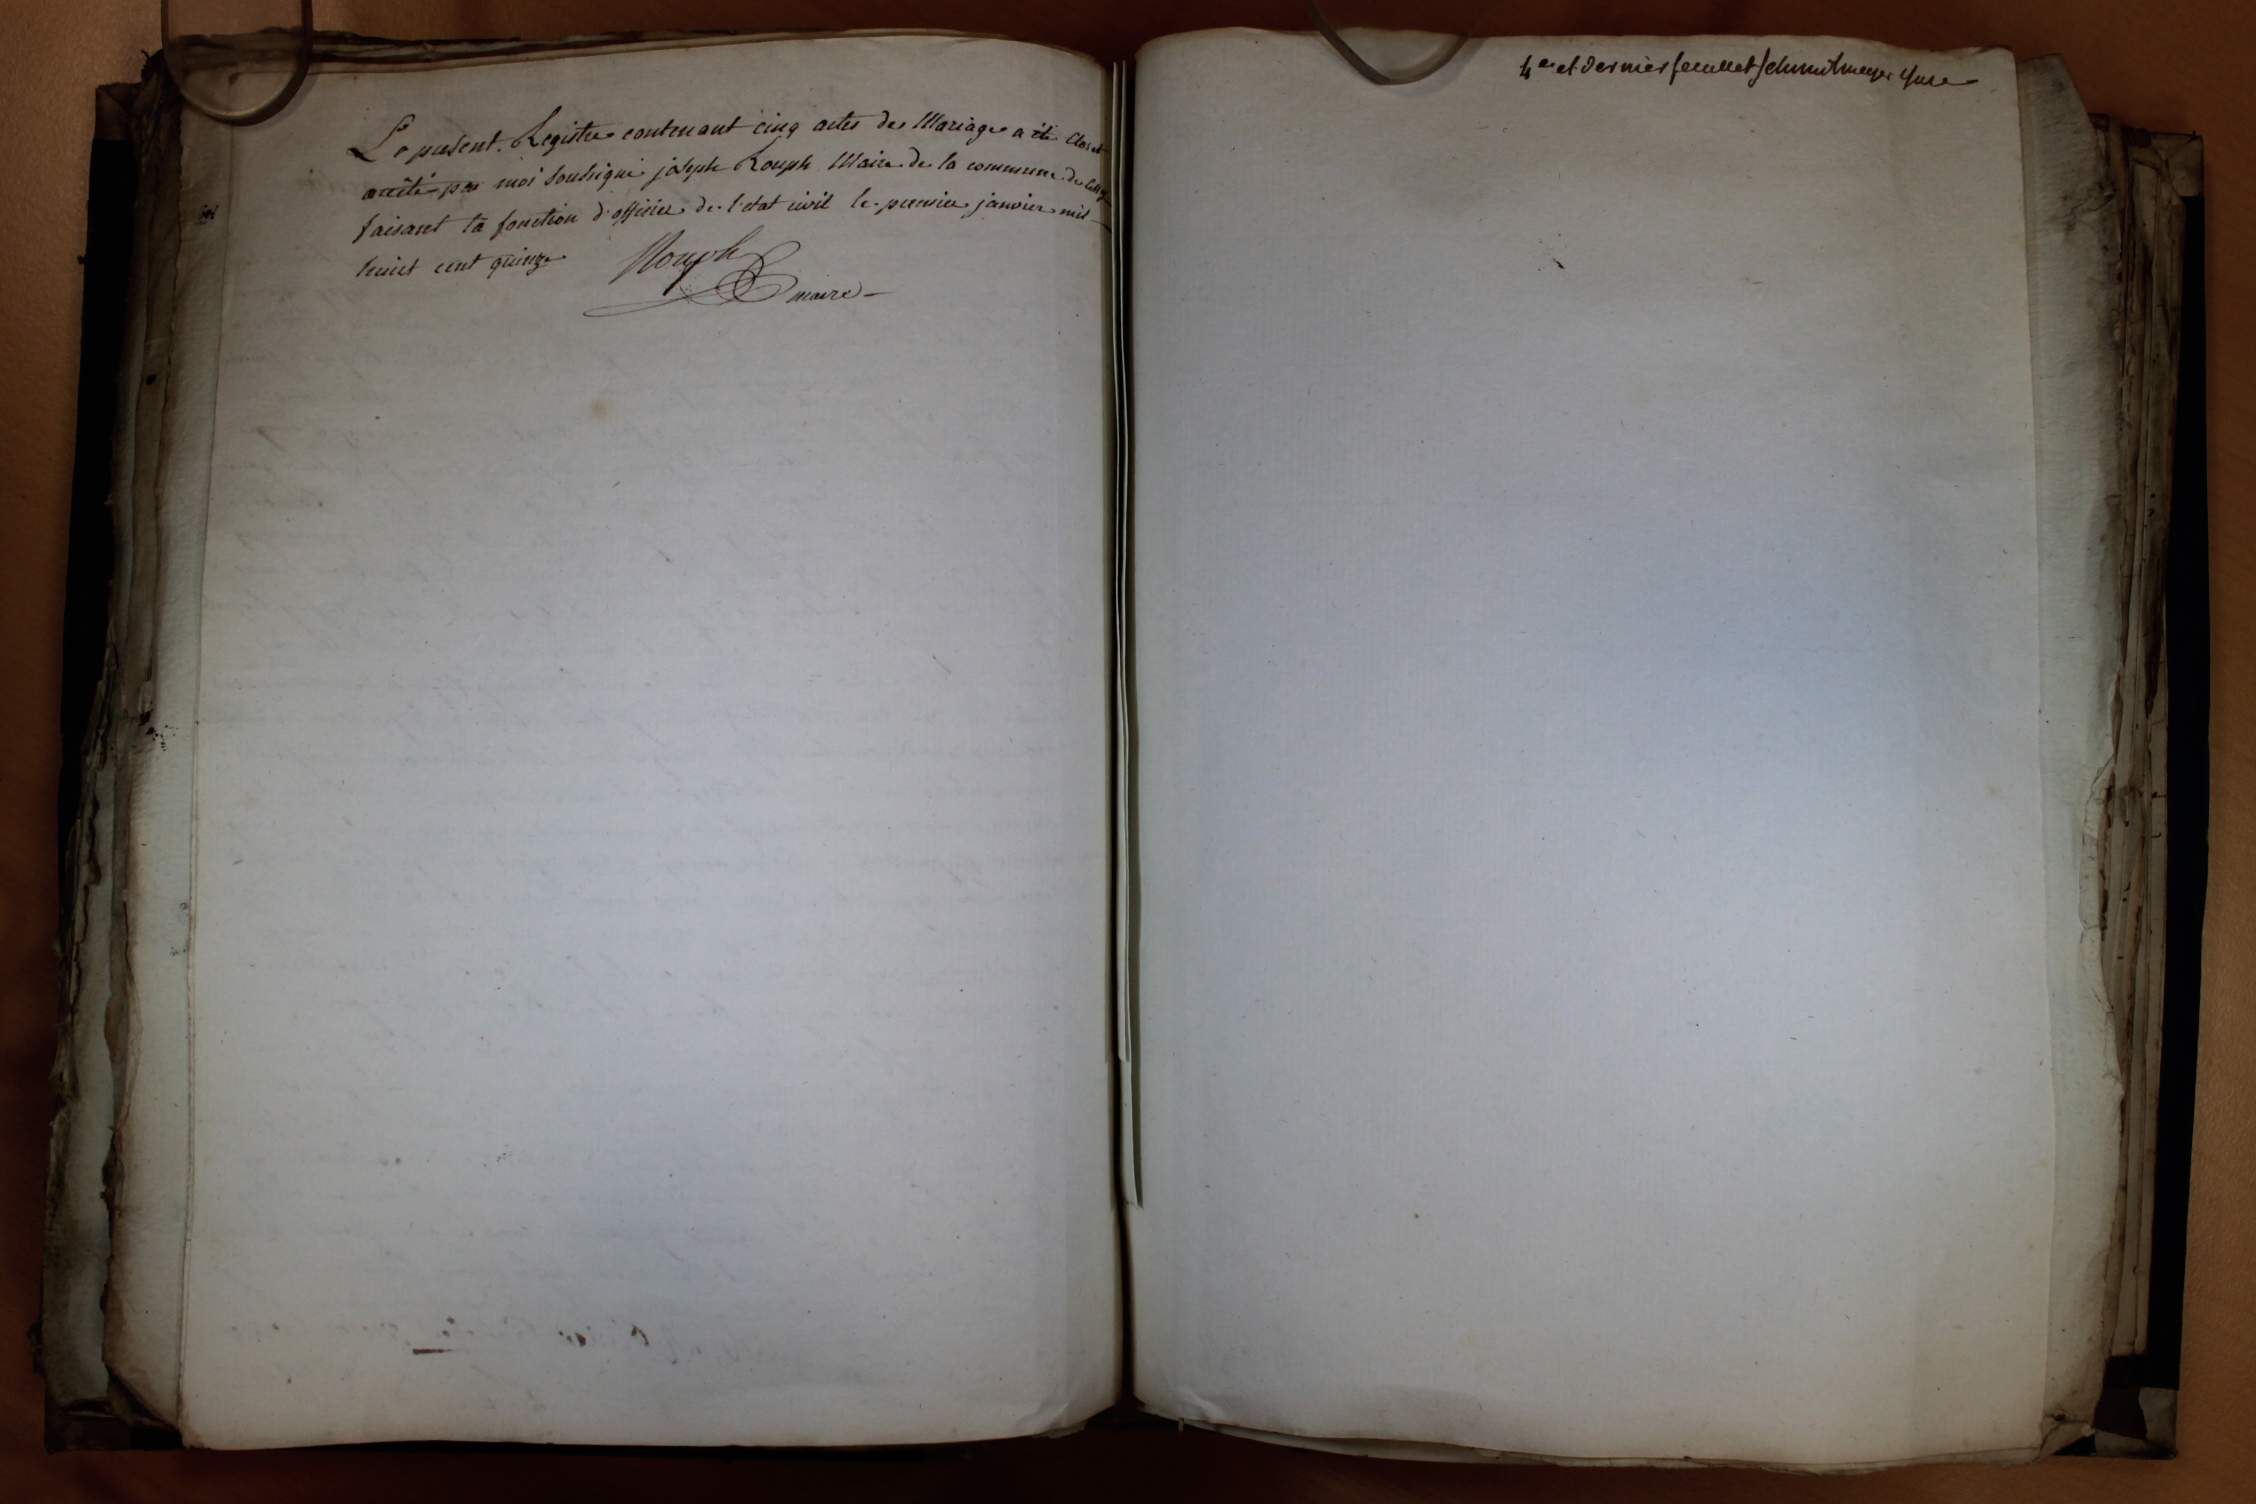 Le present Registre contenant cinq actes de Mariage a été Clos et
arrêté par moi soussigné joseph Rouph Maire de la commune de
faisant la fonction d'officier de l'etat civil le premier janvier mil
huict cent quinze
Rouph
maire
4e et dernier feuillet